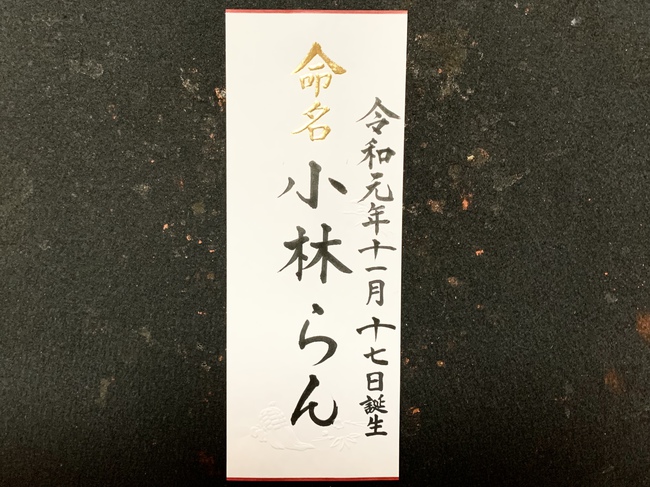 令和元年十一月十七日誕生
命名 小林らん